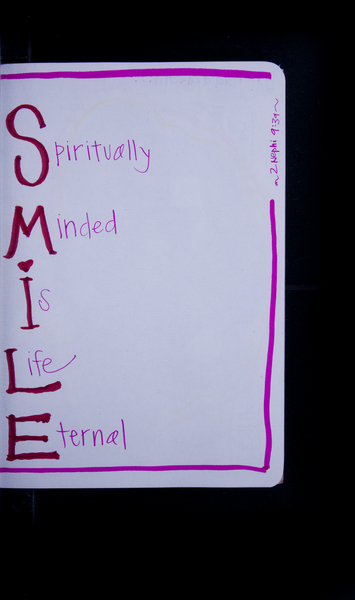 Spiritually
Minded
is
Life
Eternal
~2 Nephi 9:39~